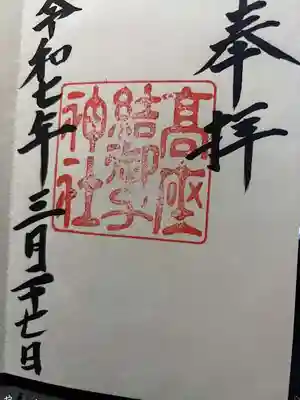 奉拝
髙座
結御子
神社
令和七年 三月二十七日